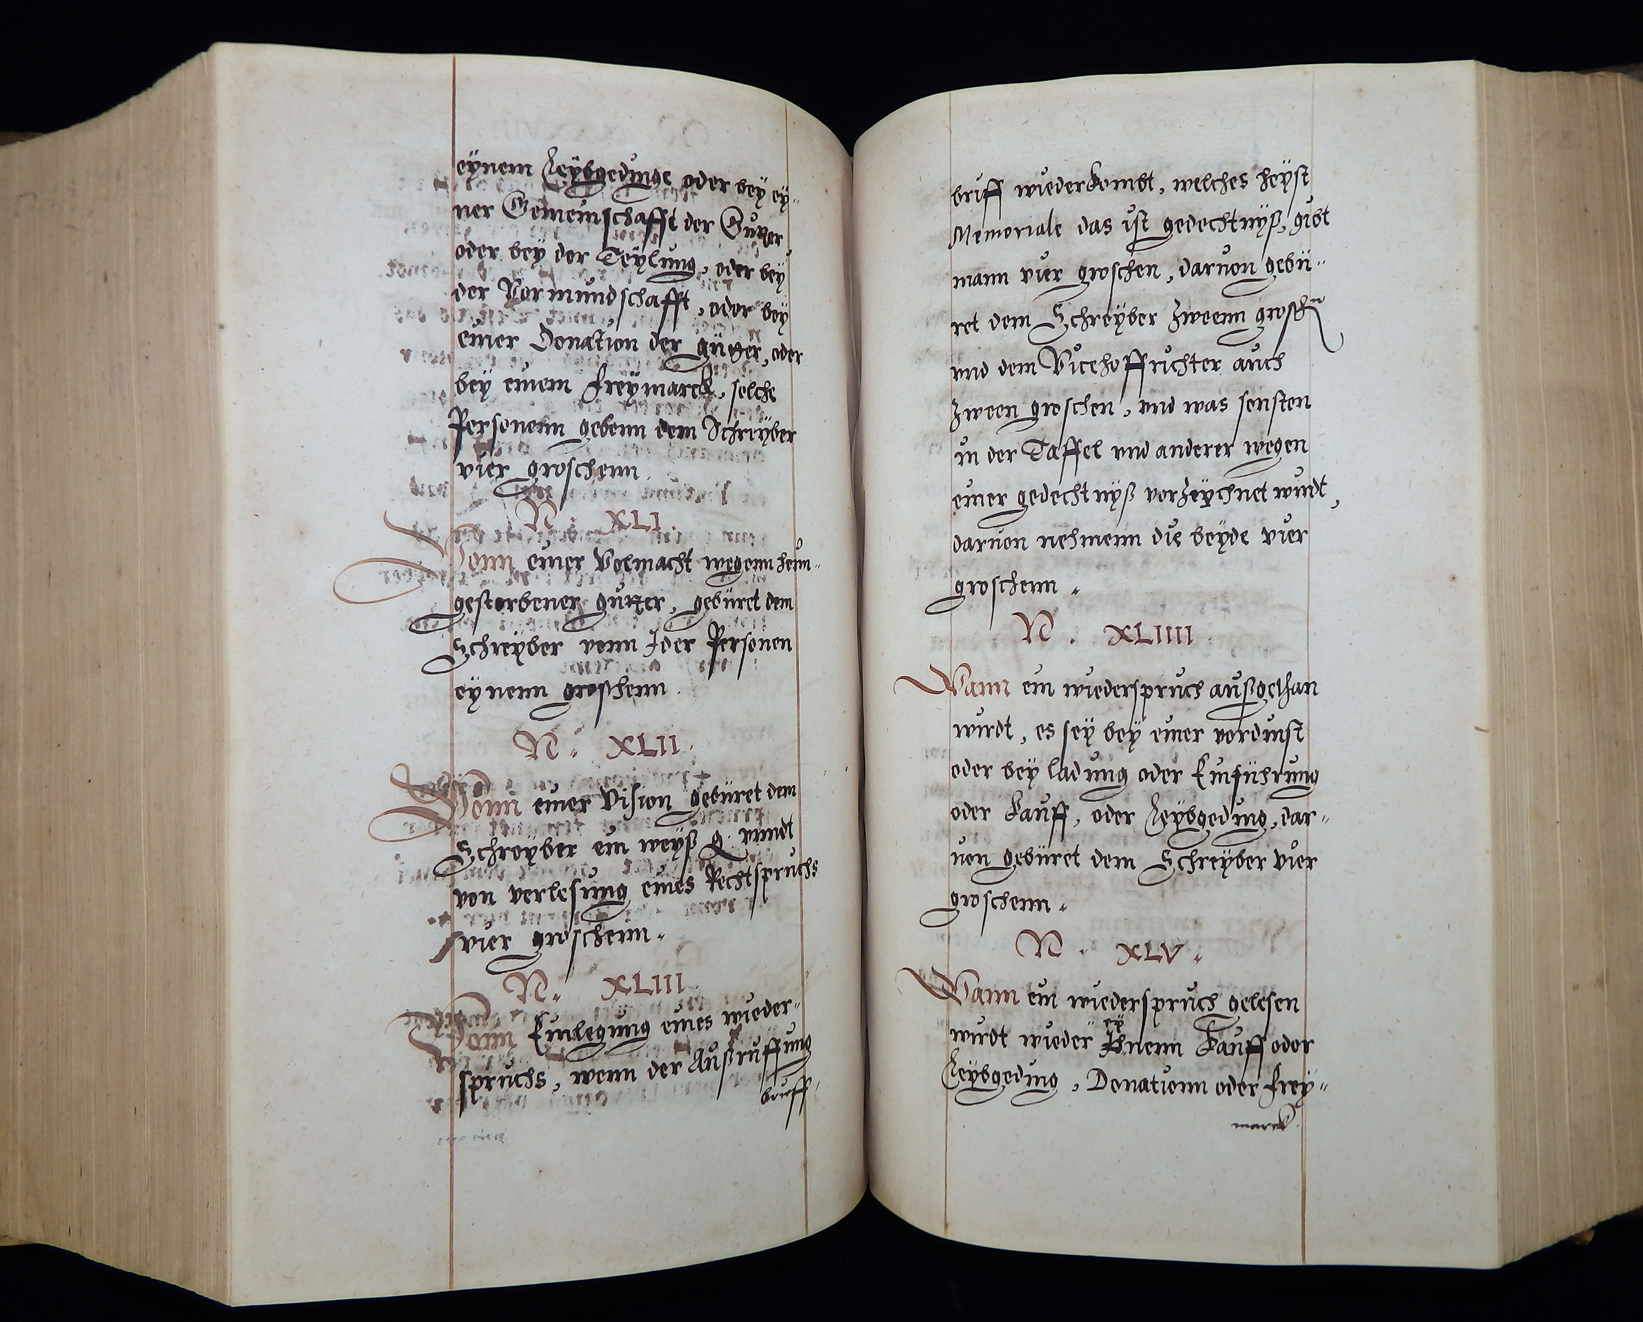 eÿnem Leÿbgedinge oder beÿ eÿ-
ner Gemeinschafft der Gutter
oder beÿ der Teÿlung, oder beÿ
der Vormundschafft, oder beÿ
einer Donation der gütter, oder
beÿ einem freÿmarck, solche
Personenn gebenn dem Schreÿber
vier groschenn.
N. XLI.
Vonn einer Volmacht wegenn heim-
gestorbener gutter, gebüret dem
Schreÿber vonn Ider Personen
eÿnenn groschenn.
N. XLII.
Vonn einer Vision gebüret dem
Schreÿber ein weÿß g. vnndt
von verlesung eines Rechtspruchs
vier groschenn.
N. XLIII.
Vonn Einlegung eines wieder-
spruchs, wenn der Außruffung
brieff
briff wiederkombt, welches heÿst
Memoriale das ist gedechtnÿß, gibt
mann vier groschen, daruon gebü-
ret dem Schreÿber Zweenn grosch
vnd dem Vicehoffrichter auch
Zween groschen, vnd was sonsten
in der Taffel vnd anderer wegen
einer gedechtnÿß vorZeÿchnet wirdt,
daruon nehmenn die beÿde vier
groschenn.
N. XLIIII.
Wann ein wiederspruch außgethan
wirdt, es seÿ beÿ einer vordinst
oder beÿ ladung oder Einführung
oder Kauff, oder Leÿbgeding, dar-
uon gebüret dem Schreÿber vier
groschenn.
N. XLV.
Wann ein wiederspruch gelesen
wirdt wieder eÿnenn Kauff oder
Leÿbgeding, Donationn oder freÿ-
marck